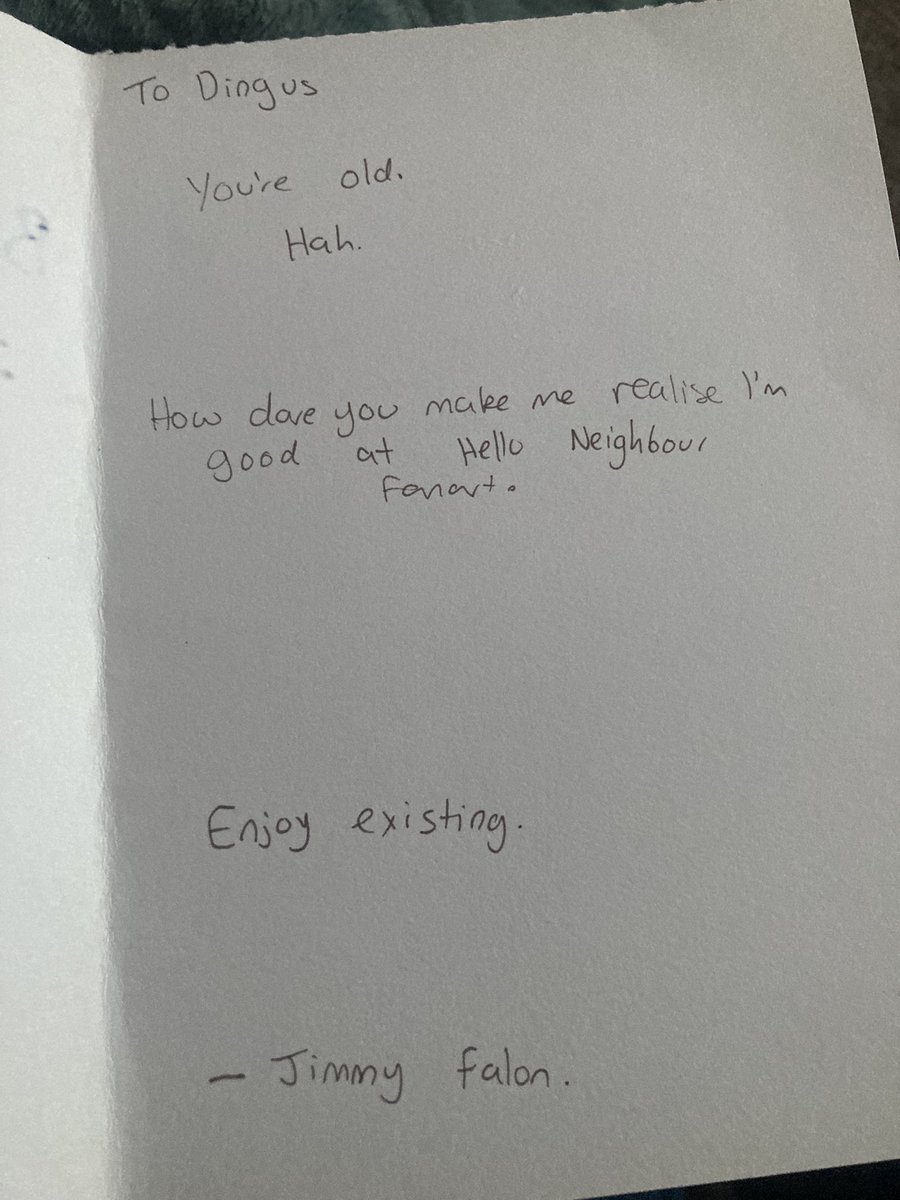 To Dingus
You're old.
Hah.
How dare you make me realise I'm
good at Hello Neighbour
Fanart.
Enjoy existing.
– Jimmy falon.